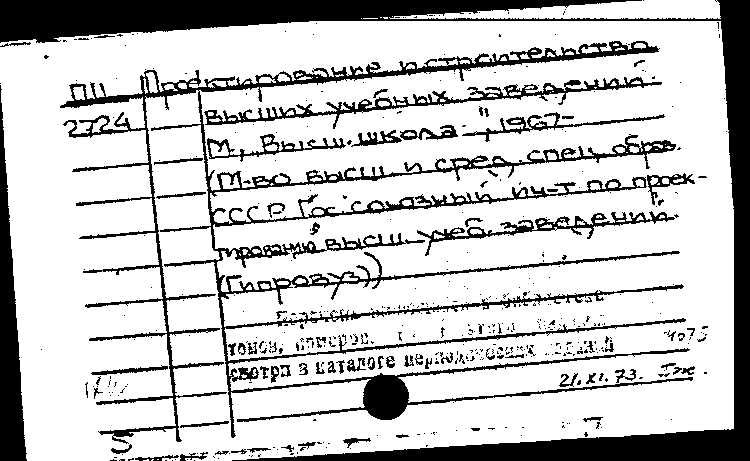 ПП Проектирование и строительство
2724 высших учебных заведений.
М., „Высш. школа", 1967-
(М-во высш. и сред. спец. образ.
СССР. Гос. союзный ин-т по проек-
тированию высш. учеб. заведений.
(Гипровуз))
Перечень имеющихся в библиотеке
томов, номеров, этого издания
смотри в каталоге периодических изданий
4075
21.XI.73.
5